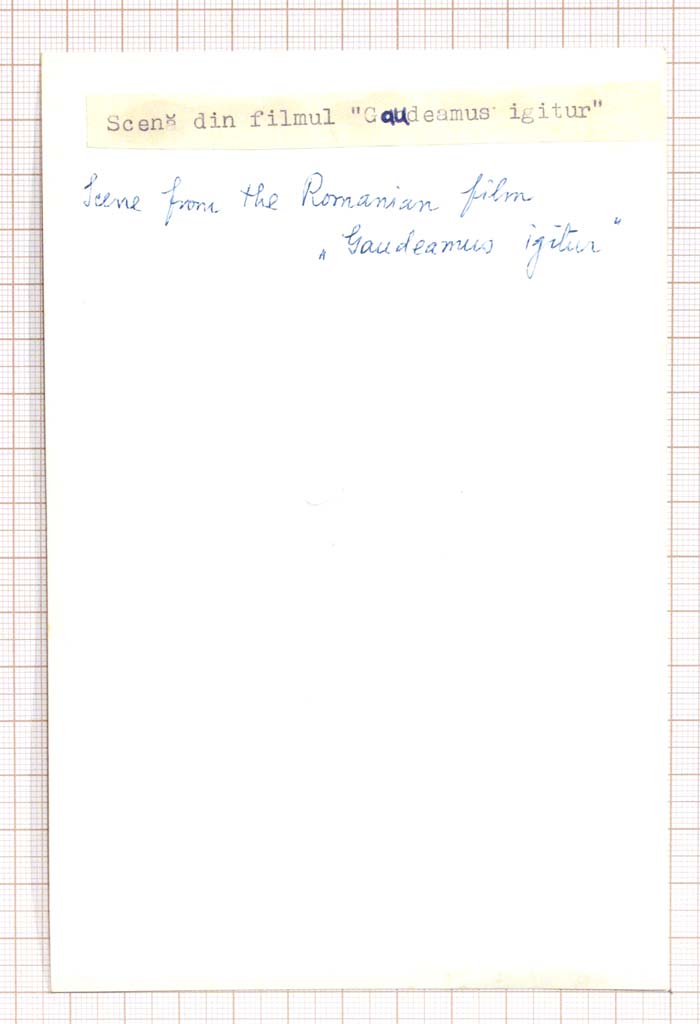 Scenă din filmul "Gaudeamus igitur"
Scene from the Romanian film
„Gaudeamus igitur"